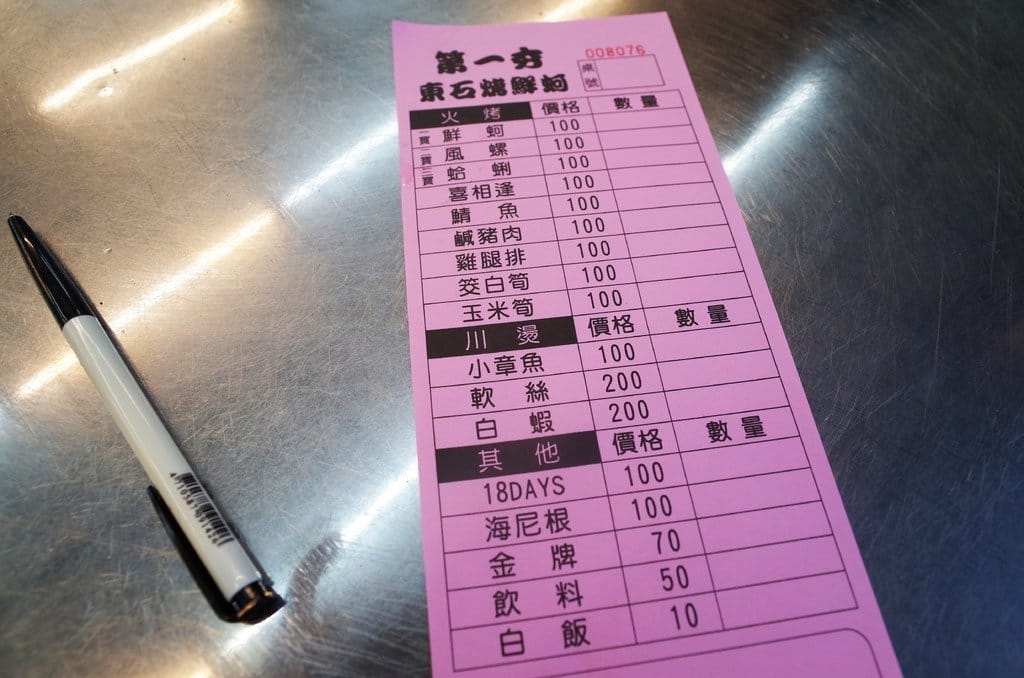 第一夯 008076
東石燒鮮蚵 桌號
火烤 價格 數量
一寶 鮮蚵 100
二寶 風螺 100
三寶 蛤蜊 100
喜相逢 100
鯖魚 100
鹹豬肉 100
雞腿排 100
筊白筍 100
玉米筍 100
川燙 價格 數量
小章魚 100
軟絲 200
白蝦 200
其他 價格 數量
18DAYS 100
海尼根 100
金牌 70
飲料 50
白飯 10